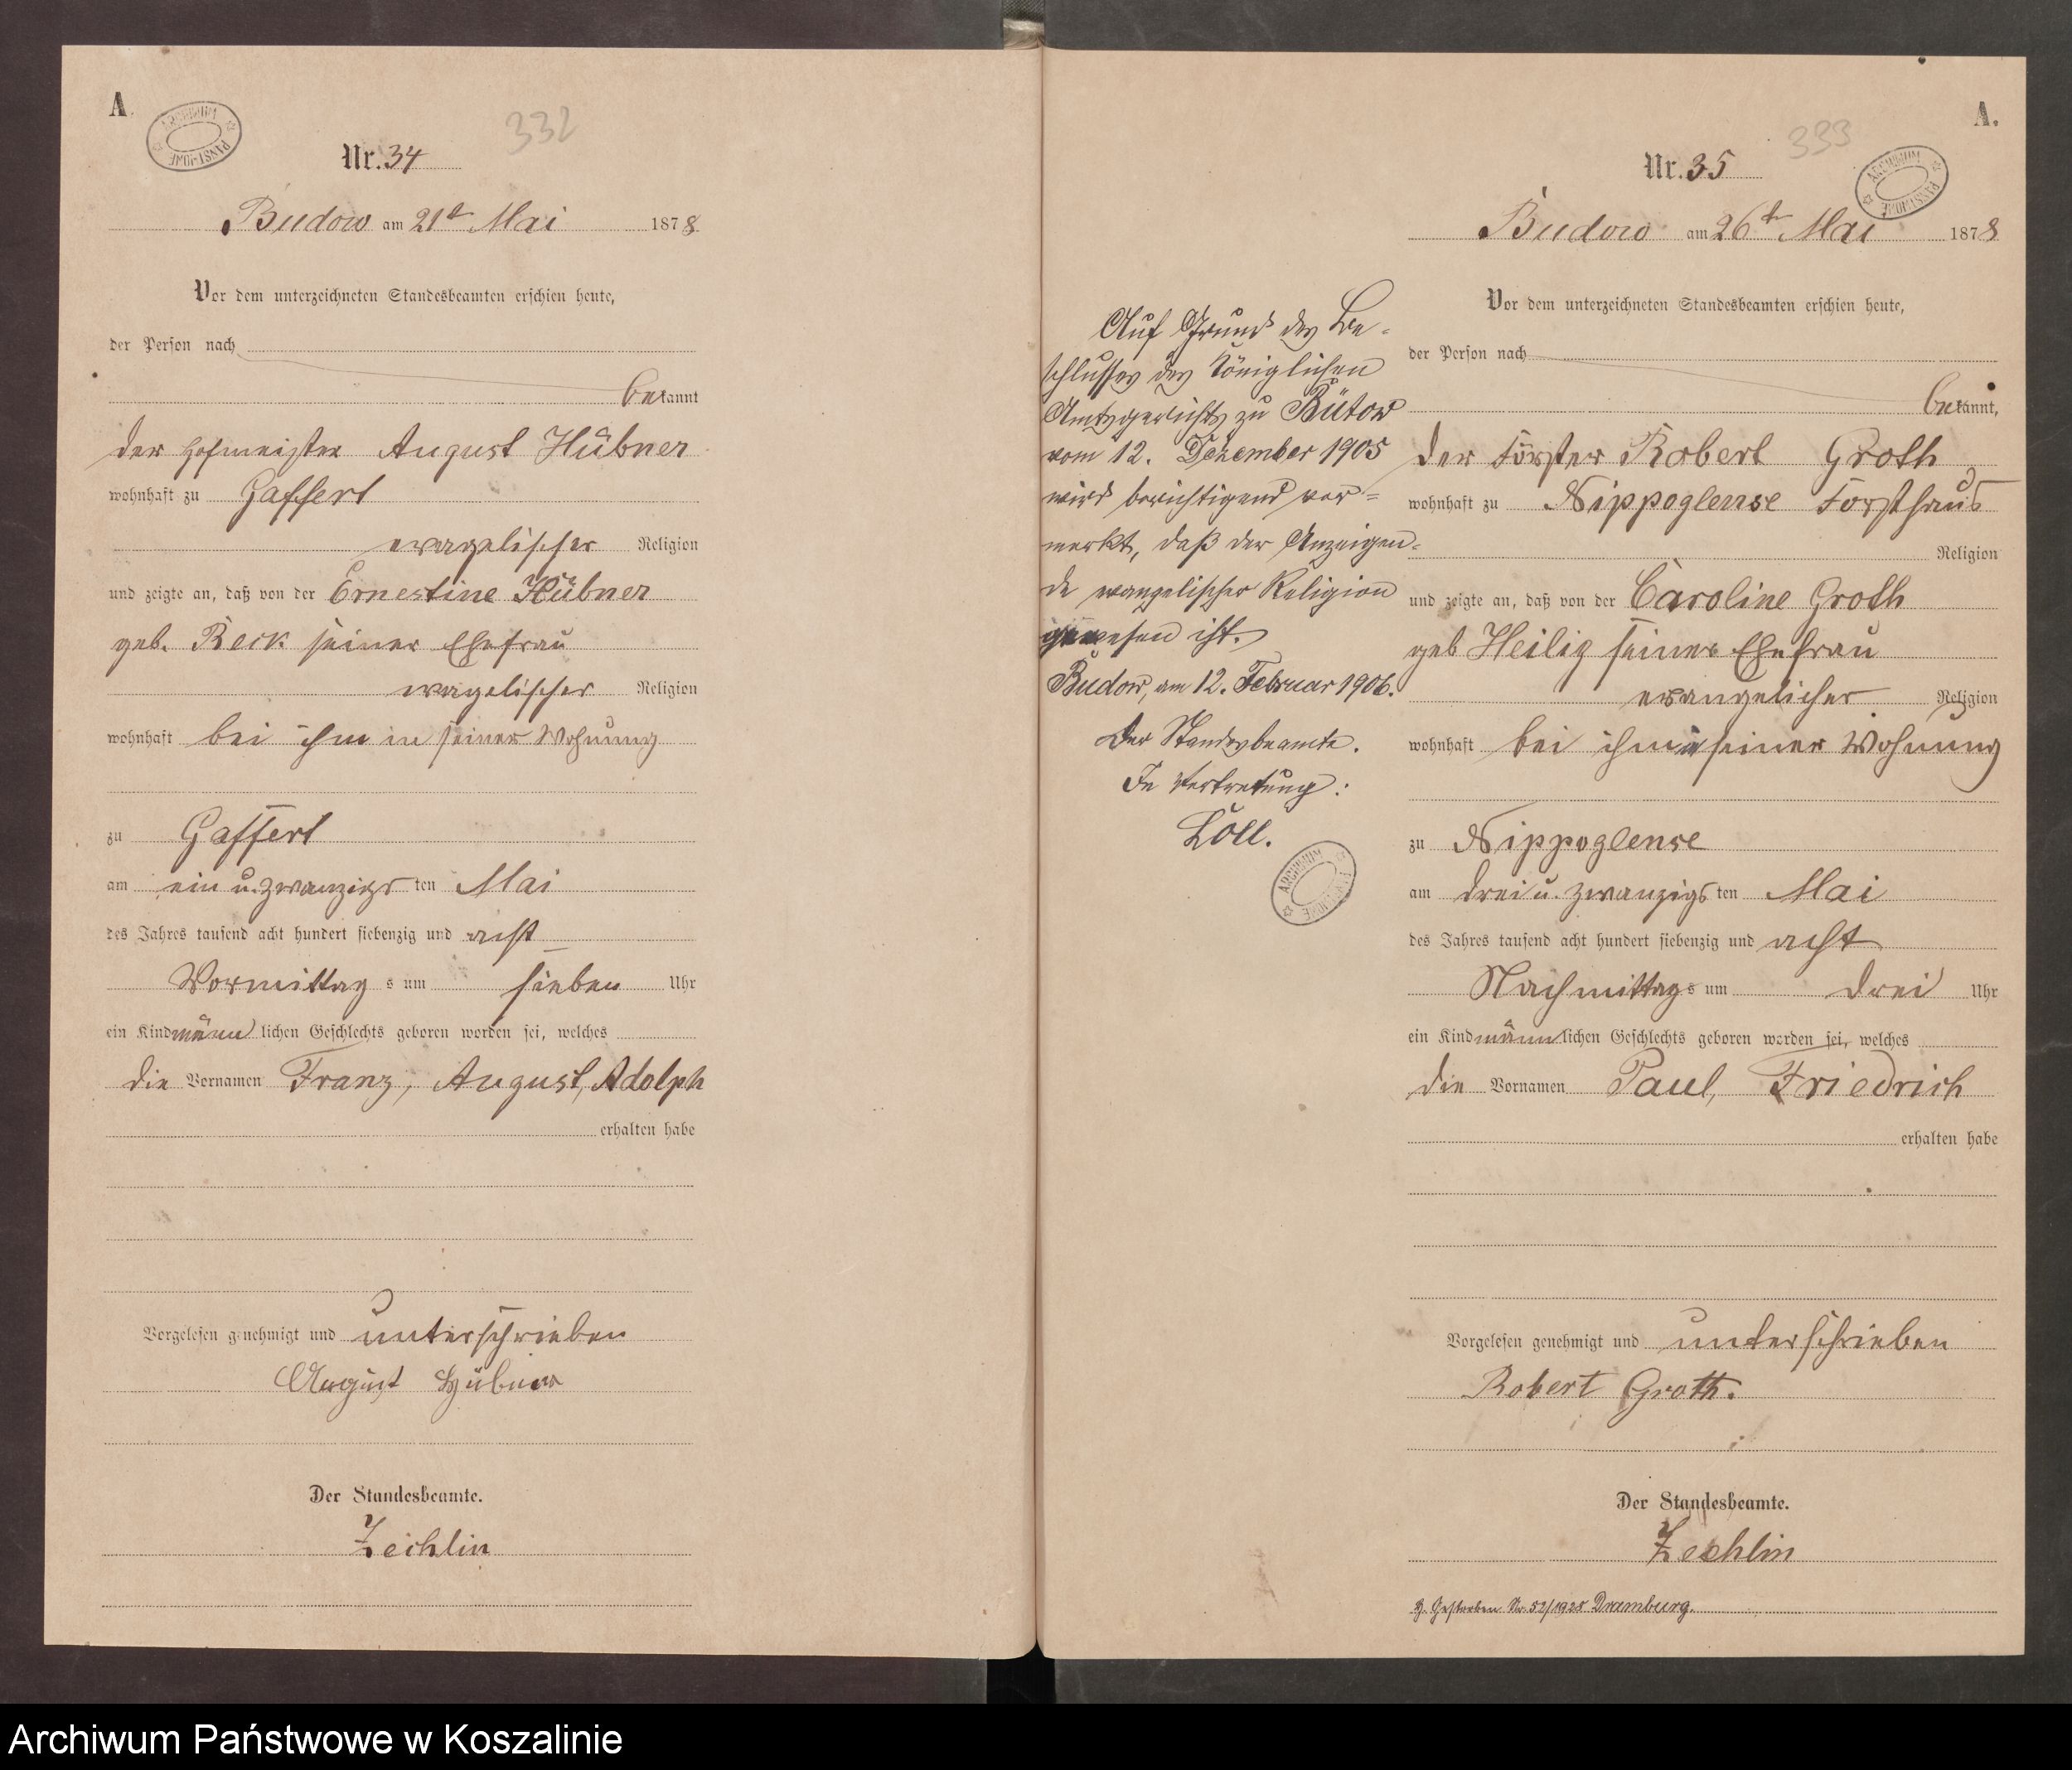 A.
ARCHIWUM PAŃSTWOWE
332
Nr. 34
Budow am 21t Mai 1878
Vor dem unterzeichneten Standesbeamten erschien heute,
der Person nach
bekannt
der Hofmeister August Hübner
wohnhaft zu Gaffert
evangelischer Religion
und zeigte an, daß von der Ernestine Hübner
geb. Reck seiner Ehefrau
evangelischer Religion
wohnhaft bei ihm in seiner Wohnung
zu Gaffert
am ein u. zwanzigs ten Mai
des Jahres tausend acht hundert siebenzig und acht
Vormittag s um sieben Uhr
ein Kind männ lichen Geschlechts geboren worden sei, welches
die Vornamen Franz, August, Adolph
erhalten habe
Vorgelesen genehmigt und unterschrieben
August Hübner
Der Standesbeamte.
Zechlin
A.
333
Nr. 35
ARCHIWUM PAŃSTWOWE
Budow am 26t Mai 1878
Vor dem unterzeichneten Standesbeamten erschien heute,
der Person nach
bekannt,
der Förster Robert Groth
wohnhaft zu Nippoglense Forsthaus
Religion
und zeigte an, daß von der Caroline Groth
geb Heilig seiner Ehefrau
evangelicher Religion
wohnhaft bei ihm in seiner Wohnung
zu Nippoglense
am drei u. zwanzigs ten Mai
des Jahres tausend acht hundert siebenzig und acht
Nachmittag s um drei Uhr
ein Kind männ lichen Geschlechts geboren worden sei, welches
die Vornamen Paul, Friedrich
erhalten habe
Vorgelesen genehmigt und unterschrieben
Robert Groth.
Der Standesbeamte.
Zechlin
Gestorben Nr. 52/1928 Dramburg.
Auf Grund des Be-
schlusses des Königlichen
Amtsgerichts zu Bütow
vom 12. Dezember 1905
wird berichtigend ver=
merkt, daß der Anzeigen-
de evangelischer Religion
gewesen ist.
Budow, am 12. Februar 1906.
Der Standesbeamte.
In Vertretung:
Löll.
ARCHIWUM PAŃSTWOWE
Archiwum Państwowe w Koszalinie